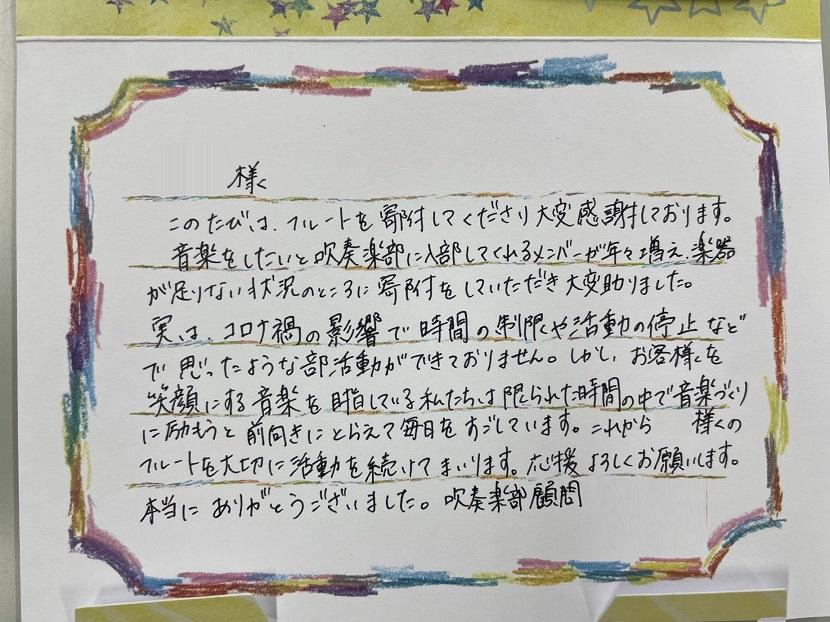 様
このたびは、フルートを寄附してくださり大変感謝しております。
音楽をしたいと吹奏楽部に入部してくれるメンバーが年々増え、楽器
が足りない状況のところに寄附をしていただき大変助りました。
実は、コロナ禍の影響で時間の制限や活動の停止など
で思ったような部活動ができておりません。しかし、お客様を
笑顔にする音楽を目指している私たちは限られた時間の中で音楽づくり
に励もうと前向きにとらえて毎日をすごしています。これから 様の
フルートを大切に活動を続けてまいります。応援よろしくお願いします。
本当にありがとうございました。吹奏楽部顧問